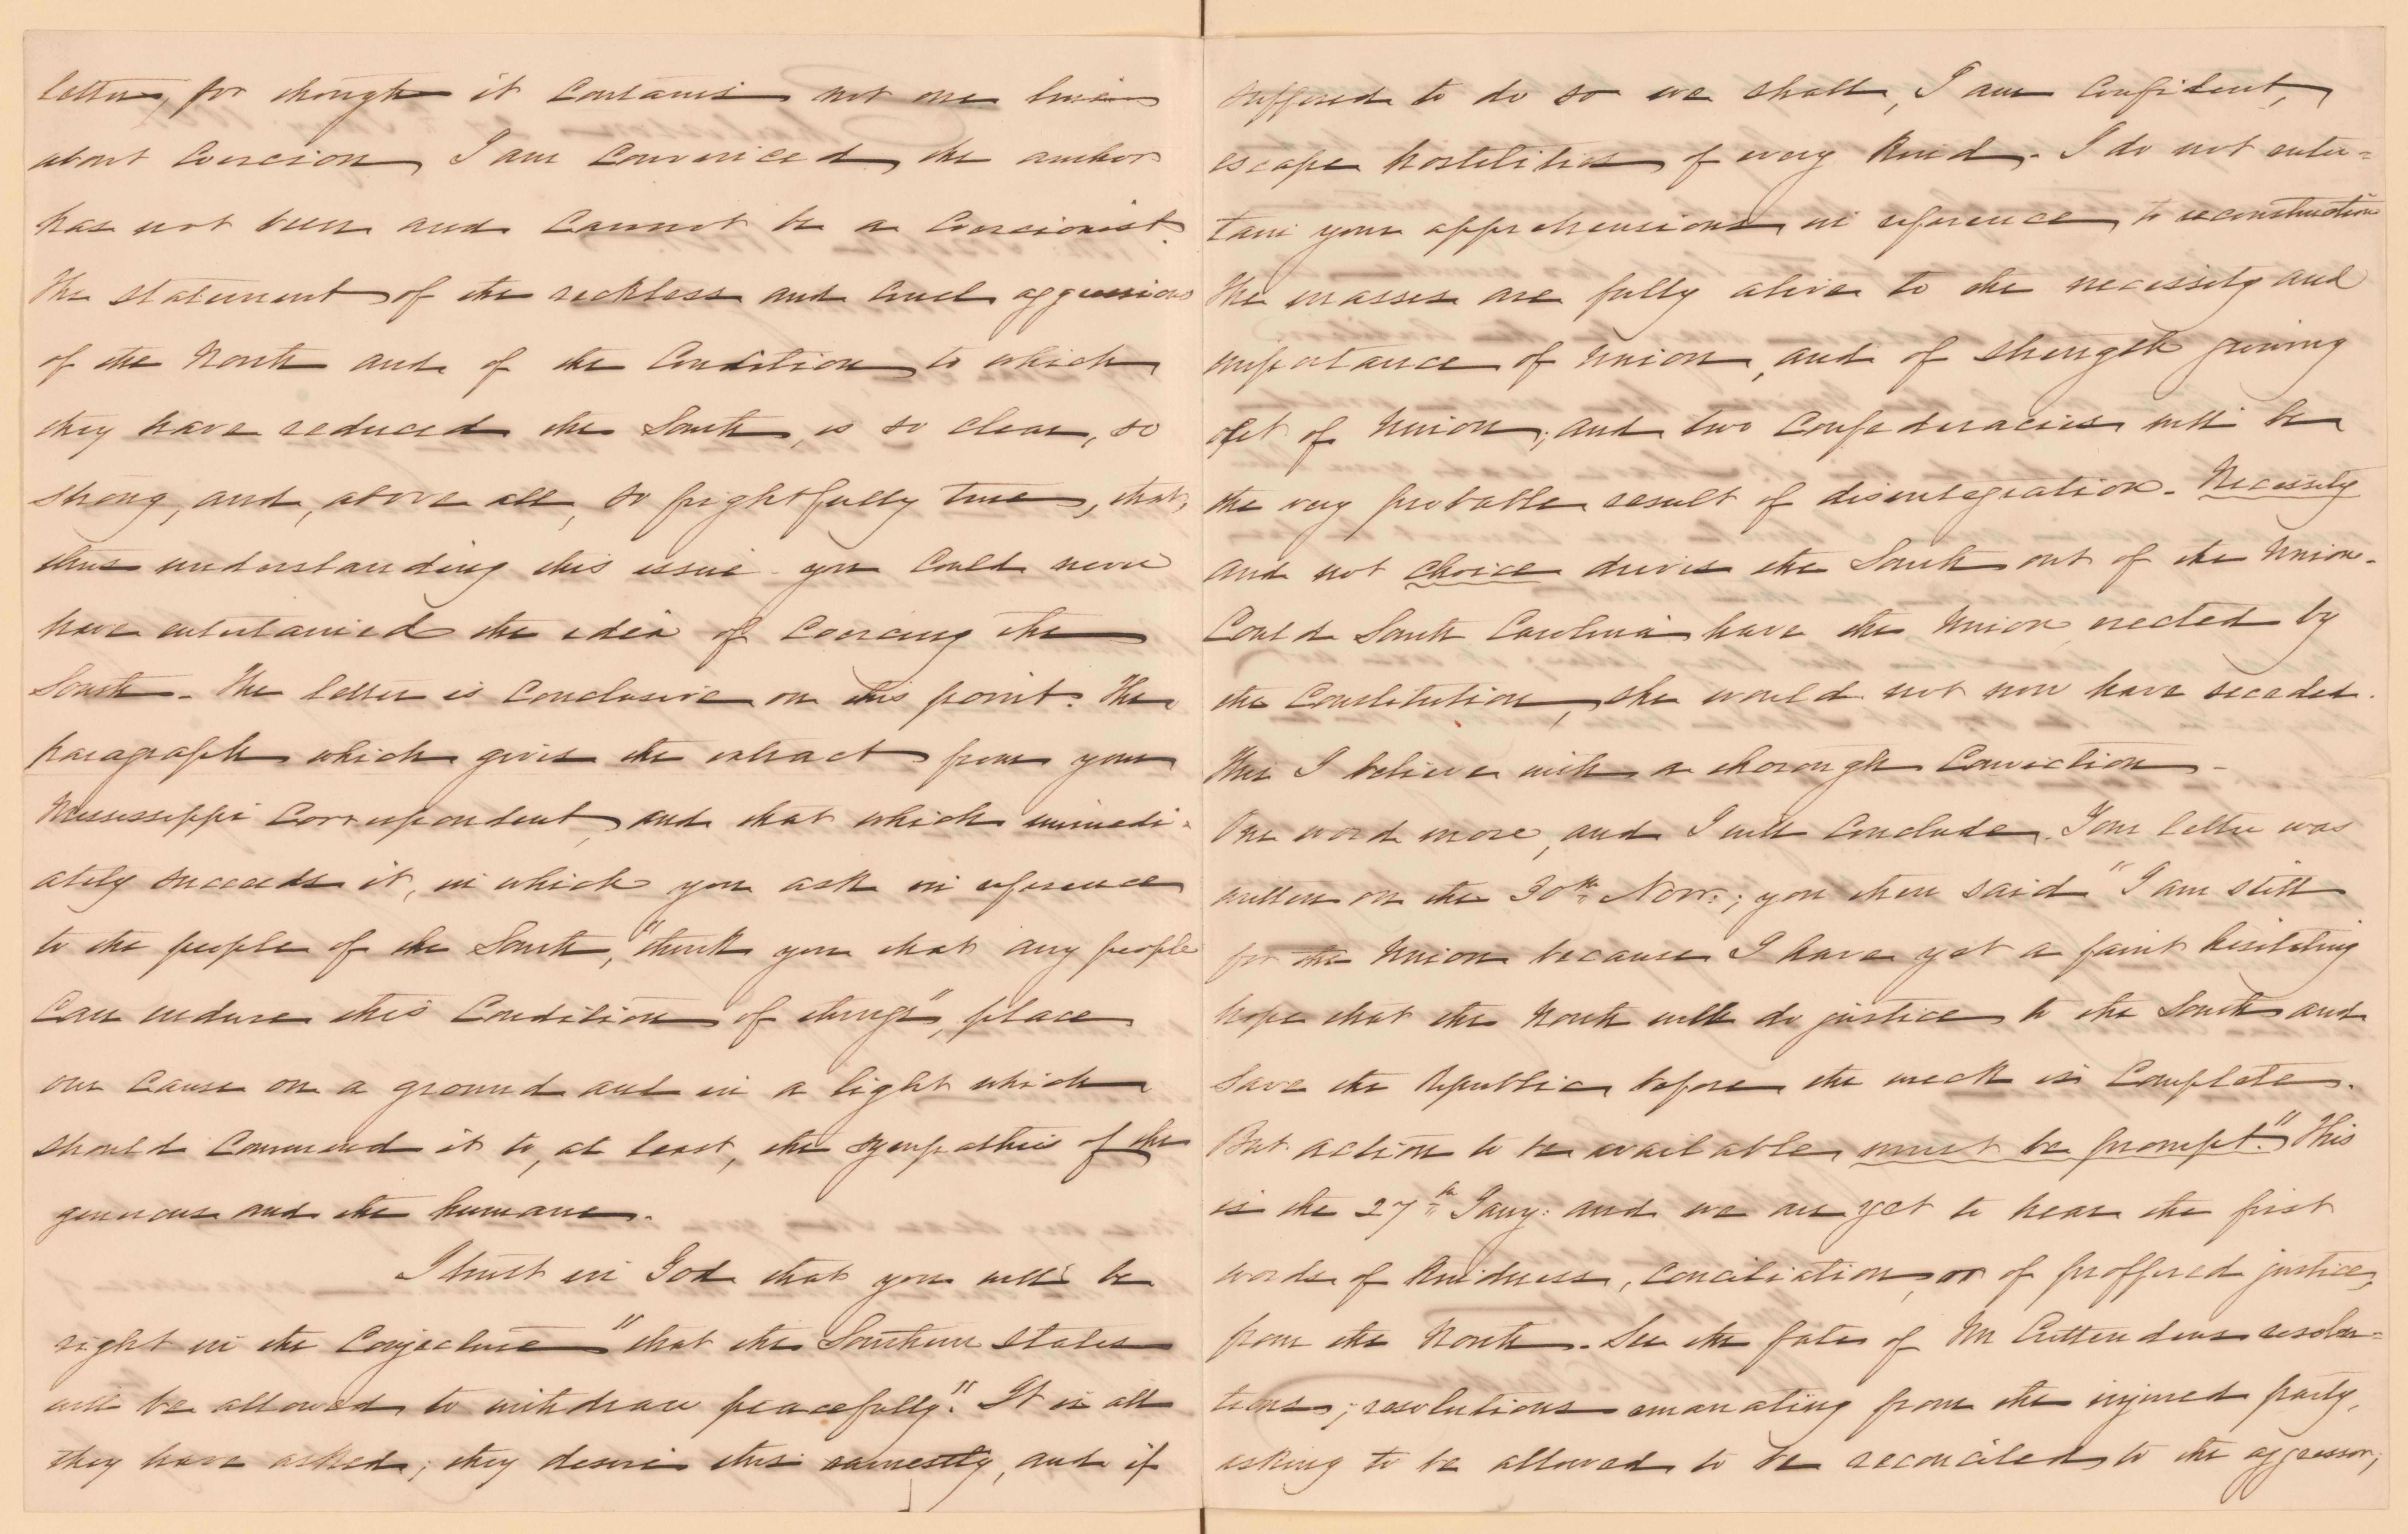 letter, for though it contains not one line
about coercion, I am convinced, the author
has not been and cannot be a coercionist.
The statement of the reckless and cruel aggressions
of the North and of the condition to which
they have reduced the South, is so clear, so
strong, and, above all, so frightfully true, that,
thus understanding this issue you could never
have entertained the idea of coercing the
South. The letter is conclusive on this point. The
paragraph which gives the extract from your
Mississippi correspondent, and that which immedi-
ately succeeds it, in which you ask in reference
to the people of the South, "think you that any people
can endure this condition of things", place
our cause on a ground and in a light which
should commend it to, at least, the sympathies of the
generous and the humane.
I trust in God that you will be
right in the conjecture "that the Southern States
will be allowed to withdraw peacefully." It is all
they have asked; they desire this earnestly, and if
suffered to do so we shall, I am confident,
escape hostilities of every kind. I do not enter-
tain your apprehensions in reference to reconstruction
The masses are fully alive to the necessity and
importance of Union, and of strength growing
out of Union; and two Confederacies will be
the very probable result of disintegration. Necessity
and not choice drives the South out of the Union.
Could South Carolina have the Union erected by
the Constitution, she would not now have seceded.
This I believe with a thorough conviction.
One word more, and I will conclude. Your letter was
written on the 30th Novr.; you then said "I am still
for the Union because I have yet a faint hesitating
hope that the North will do justice to the South and
save the Republic, before the wreck is complete.
But action to be available, must be prompt." This
is the 27th Jany: and we are yet to hear the first
words of kindness, conciliation, or of proffered justice,
from the North. See the fate of Mr Crittendens resolu-
tions; resolutions emanating from the injured party,
asking to be allowed to be reconciled to the aggressor;